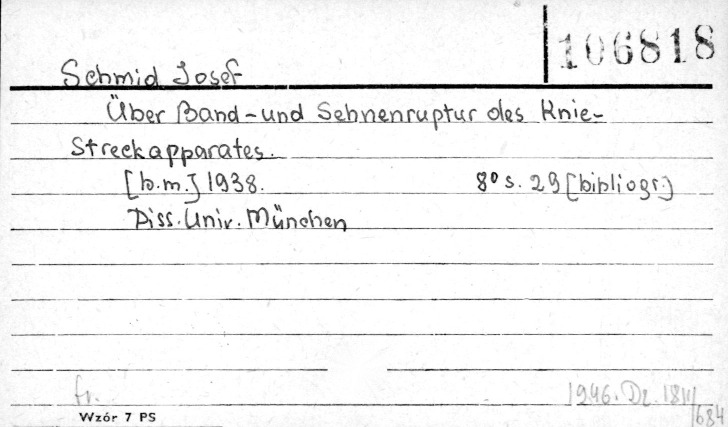 106818
Schmid Josef
Über Band-und Sehnenruptur des Knie-
Streckapparates.
[b.m.] 1938. 8° s. 29 [bibliogr.]
Diss. Univ. München
fr.
1946. Dz. 1811/684
Wzór 7 PS